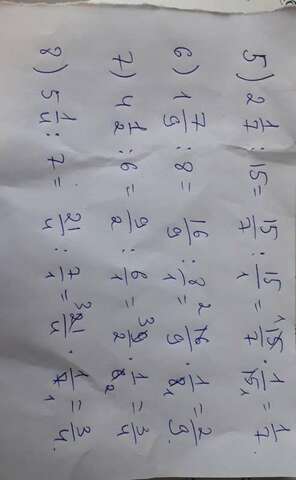 5) 2 1/7 : 15 = 15/7 : 15/1 = 15/7 · 1/15 = 1/7.
6) 1 7/9 : 8 = 16/9 : 8/1 = 16/9 · 1/8 = 2/9.
7) 4 1/2 : 6 = 9/2 : 6/1 = 9/2 · 1/6 = 3/4
8) 5 1/4 : 7 = 21/4 : 7/1 = 21/4 · 1/7 = 3/4.